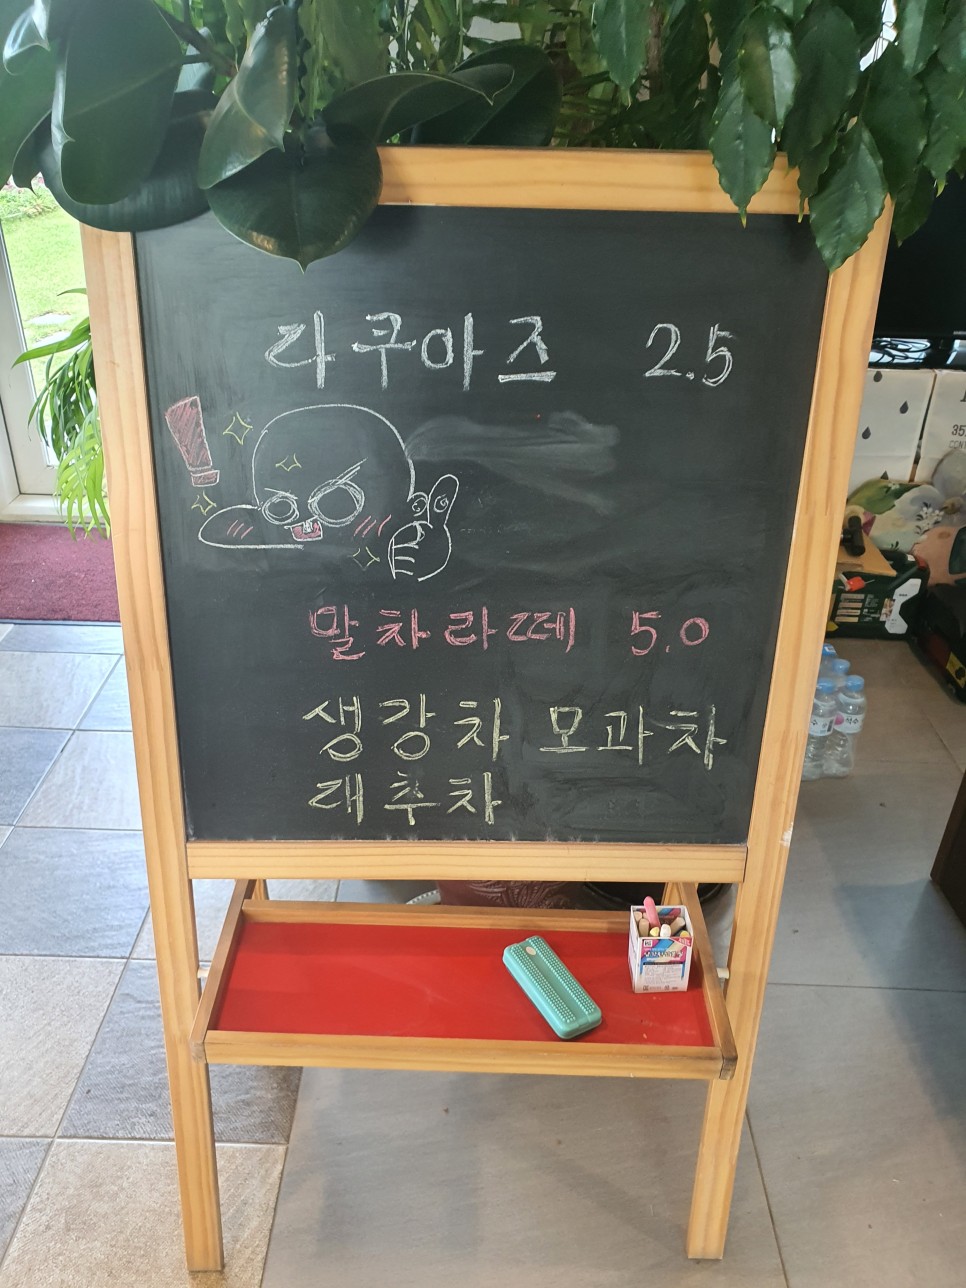 라쿠아즈 2.5
말차라떼 5.0
생강차 모과차
래추차